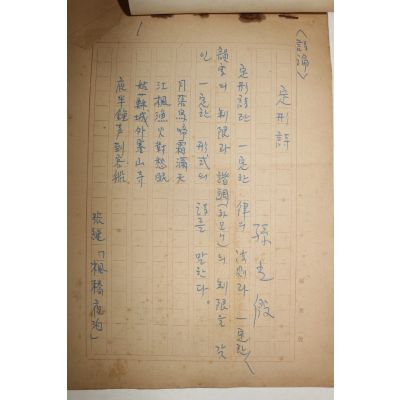 1
<詩論>
定形詩
孫
定形詩란 一定한 律의 法則과 一定한
韻字의 制限과 諧調(하모니)의 制限을 갖
인 一定한 形式의 詩를 말한다。
月落烏啼霜滿天
江楓漁火對愁眠
姑蘇城外寒山寺
夜半鐘声到客船
張継「楓橋夜泊」